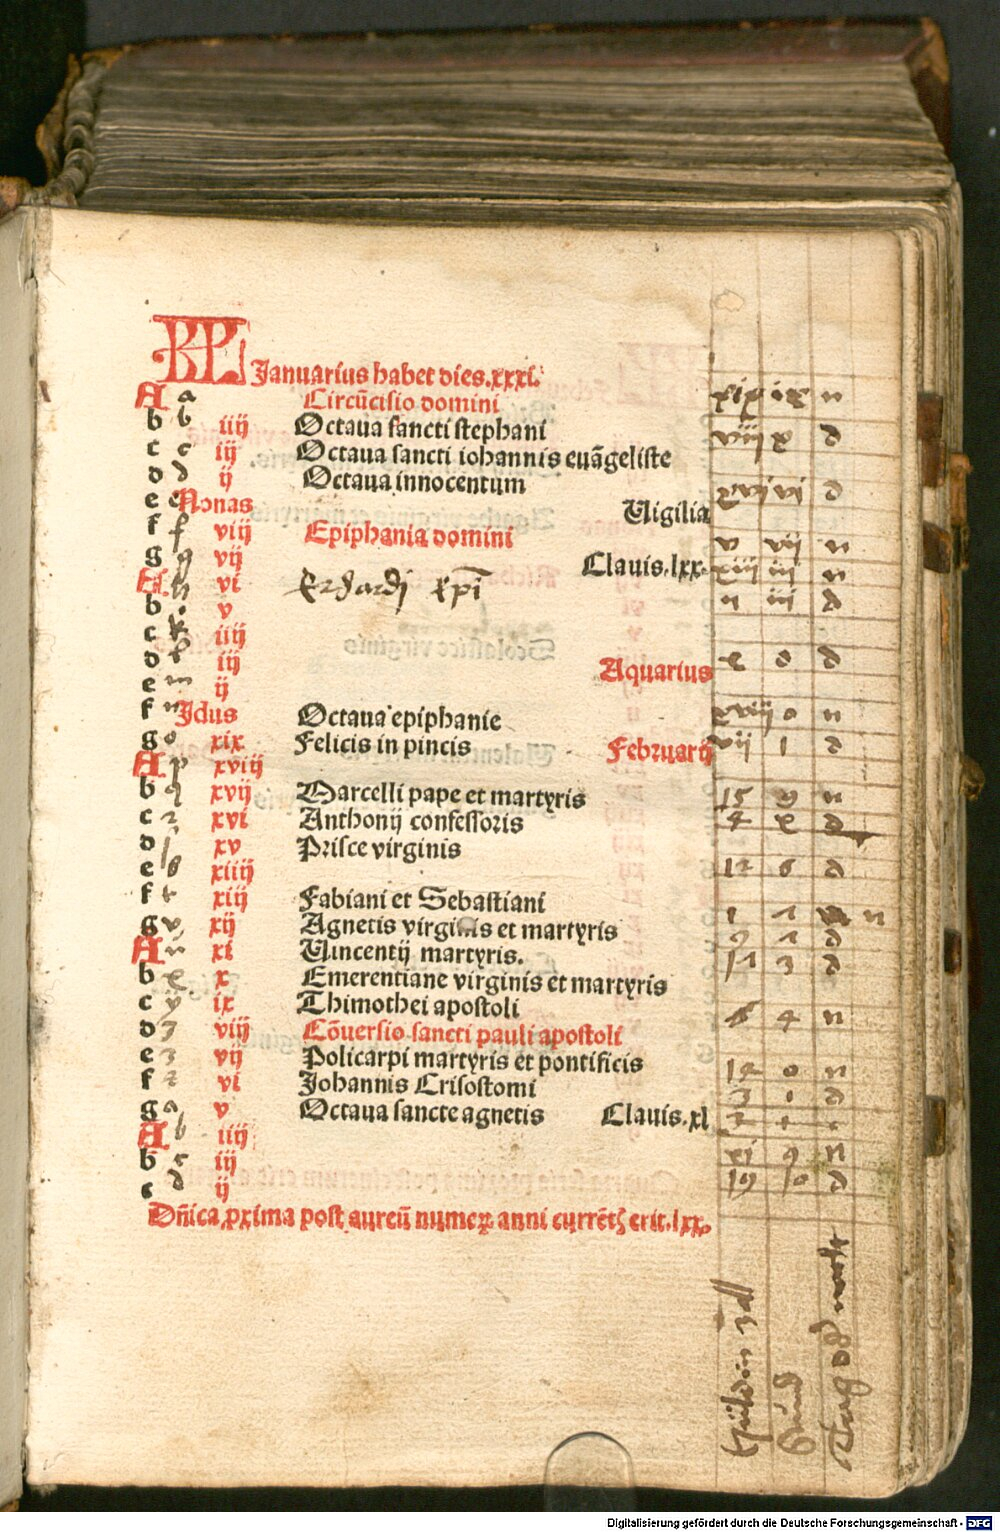 KL Januarius habet dies.xxxi.
A a Circūcisio domini xix ix n
b b iiij Octaua sancti stephani viij x d
c c iij Octaua sancti iohannis euāgeliste
d d ij Octaua innocentum xvi vi d
e e Nonas Uigilia
f f viij Epiphania domini v vij n
g g vij Clauis.lxx. xiii iii n
A h vi Erhardi epī ii iii d
b i v
c k iiij
d l iij Aquarius x 0 d
e m ij
f n Idus Octaua epiphanie xviij 0 n
g o xix Felicis in pincis Februarij vij 1 d
A p xviij
b q xvij Marcelli pape et martyris 15 9 n
c r xvi Anthonij confessoris 4 d
d ſ xv Prisce virginis
e s xiiij 12 6 d
f t xiij Fabiani et Sebastiani
g v xij Agnetis virginis et martyris 1 1 n
A u xi Uincentij martyris. 9 1 d
b x x Emerentiane virginis et martyris 17 3 d
c y ix Thimothei apostoli
d z viij Cōuersio sancti pauli apostoli 4 n
e 3 vij Policarpi martyris et pontificis
f vi Johannis Crisostomi 14 0 n
g a v Octaua sancte agnetis Clauis.xl
A b iiij
b c iij xi 9 n
c d ij 19 10 d
Dn̄ica proxima post aureū numeꝝ anni currētꝭ erit.lxx.
Güldin zal
Stund
Tag odder nacht
Digitalisierung gefördert durch die Deutsche Forschungsgemeinschaft - DFG